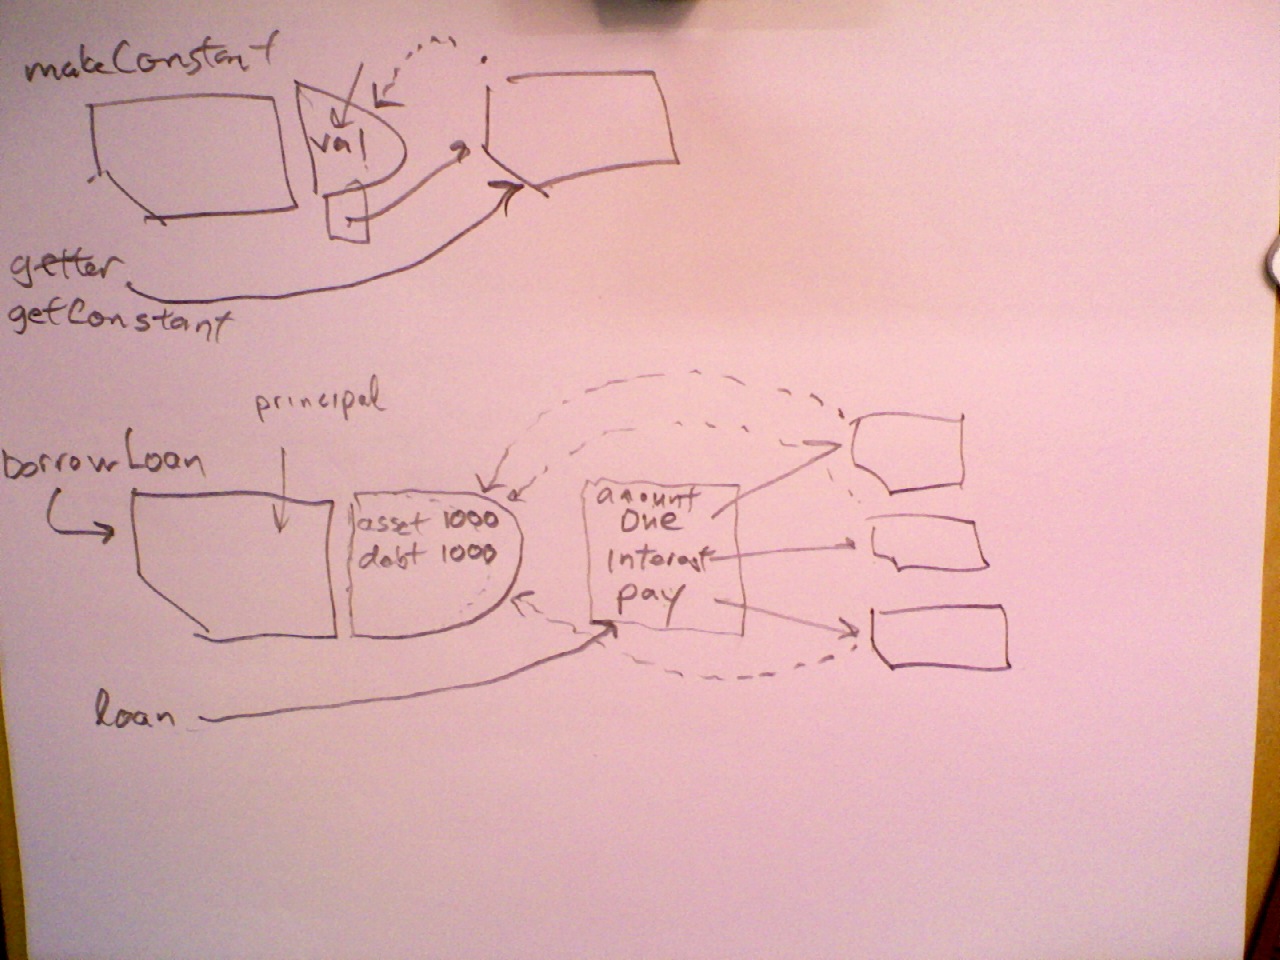 makeConstant
val
getter
getConstant
principal
borrowLoan
asset 1000
debt 1000
amount
Due
Interest
pay
loan